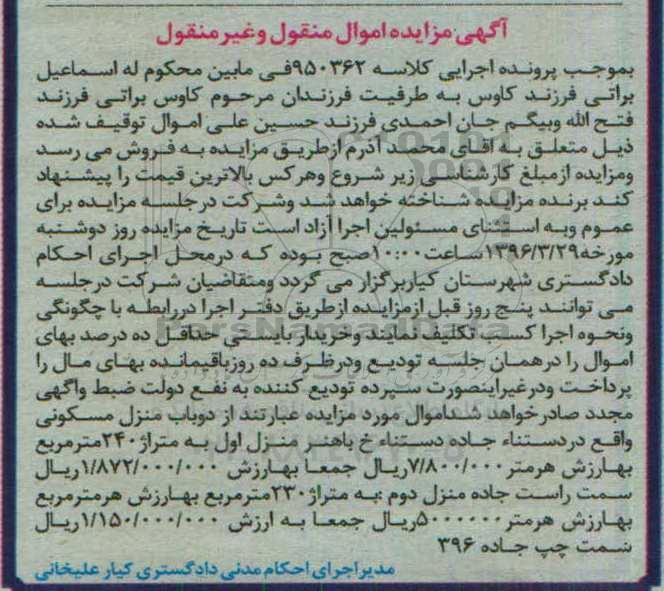 آگهی مزایده اموال منقول و غیر منقول
بموجب پرونده اجرایی کلاسه ۹۵۰۳۶۲ فی مابین محکوم له اسماعیل
براتی فرزند کاوس به طرفیت فرزندان مرحوم کاوس براتی فرزند
فتح الله وبیگم جان احمدی فرزند حسین علی اموال توقیف شده
ذیل متعلق به آقای محمد آذرم ازطریق مزایده به فروش می رسد
ومزایده ازمبلغ کارشناسی زیر شروع وهرکس بالاترین قیمت را پیشنهاد
کند برنده مزایده شناخته خواهد شد وشرکت درجلسه مزایده برای
عموم وبه استثنای مسئولین اجرا آزاد است تاریخ مزایده روز دوشنبه
مورخه ۱۳۹۶/۳/۲۹ ساعت ۱۰:۰۰ صبح بوده که درمحل اجرای احکام
دادگستری شهرستان کیاربرگزار می گردد ومتقاضیان شرکت درجلسه
می توانند پنج روز قبل ازمزایده ازطریق دفتر اجرا دررابطه با چگونگی
ونحوه اجرا کسب تکلیف نمایند وخریدار بایستی حداقل ده درصد بهای
اموال را درهمان جلسه تودیع ودرظرف ده روزباقیمانده بهای مال را
پرداخت ودرغیراینصورت سپرده تودیع کننده به نفع دولت ضبط واگهی
مجدد صادرخواهد شداموال مورد مزایده عبارتند از دوباب منزل مسکونی
واقع دردستناء جاده دستناء خ باهنر منزل اول به متراژ ۲۴۰ مترمربع
بهارزش هرمتر ۷/۸۰۰/۰۰۰ ریال جمعا بهارزش ۱/۸۷۲/۰۰۰/۰۰۰ ریال
سمت راست جاده منزل دوم :به متراژ ۲۳۰ مترمربع بهارزش هرمترمربع
بهارزش هرمتر ۵۰۰۰۰۰۰ ریال جمعا به ارزش ۱/۱۵۰/۰۰۰/۰۰۰ ریال
سمت چپ جاده ۳۹۶
مدیراجرای احکام مدنی دادگستری کیار علیخانی
ParsNamadData